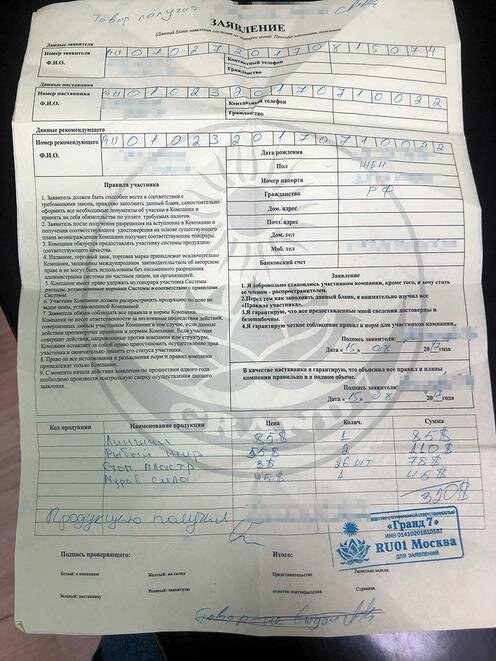 Товар получил
ЗАЯВЛЕНИЕ
Данные заявителя
Номер заявителя RU 0 1 0 2 7 2 0 1 7 0 8 1 5 0 7 4
Ф.И.О.
Контактный телефон
Гражданство
Данные наставника
Номер наставника RU 0 1 0 2 3 2 0 1 7 0 7 1 0 0 2 2
Ф.И.О.
Контактный телефон
Гражданство
Данные рекомендующего
Номер рекомендующего RU 0 1 0 2 3 2 0 1 7 0 7 1 0 0 2 2
Ф.И.О.
Дата рождения
Пол ЖЕН
Номер паспорта
Гражданство РФ
Дом. адрес
Почт. адрес
Дом. тел
Моб. тел
Банковский счет
Правила участника
1. Заявитель должен быть способен вести в соответствии с
требованиями закона, правдиво заполнить данный бланк, самостоятельно
оформить все необходимые документы об участии в Компании и
принять на себя обязательство по уплате требуемых налогов.
2. Заявитель после получения разрешения на вступление в Компанию и
получения соответствующего удостоверения на основе существующего
плана вознаграждения Компании получает соответствующие гонорары.
3. Компания обязуется предоставлять участнику системы продукцию
соответствующего качества.
4. Название, торговый знак, торговая марка принадлежат исключительно
Компании, защищены международным законодательством об авторском
праве и не могут быть использованы без письменного разрешения
администрации системы ни частным лицом, ни организацией.
5. Компания имеет право удержать из гонорара участника Системы
расходы, установленные нормами Системы в соответствии с правилами
Системы.
6. Участник Компании должен распространять продукцию по цене не
выше цены, установленной Компанией.
7. Заявитель обязан соблюдать все правила и нормы Компании.
Компания не несет ответственности за негативные последствия действий,
совершенных любым участником Компании в том случае, если данные
действия противоречат правилам и нормам Компании. Если участник
совершит действия, направленные против компании или структуры,
Компания оставляет за собой право приостановить осуществление прав
участника и окончательно лишить его статуса участника.
8. Право на все исполнения и разъяснения норм и правил компании
принадлежит только Компании.
9. С момента начала действия заявления по прошествии одного года
необходимо произвести контрольную сверку осуществления данного
заявления.
Заявление
1. Я добровольно становлюсь участником компании, кроме того, я хочу стать
ее членом - распространителем.
2.Перед тем как заполнить данный бланк, я внимательно изучил все
«Правила участника».
3.Я гарантирую, что все предоставленные мной сведения достоверны и
безошибочны.
4.Я гарантирую четкое соблюдение правил и норм для участника компании.
Подпись заявителя:
Дата «15» 08 2017 года
В качестве наставника я гарантирую, что объяснил все правила и планы
компании правильно и в полном объеме.
Подпись заявителя:
Дата «15» 08 2017 года
GRAND
Код продукции Наименование продукции Цена Колич. Сумма
Лингчжи 85$ 1 85$
Рыбий жир 55$ 2 110$
Стоп пластр. 3$ 26 шт 78$
Мурав сила 45$ 1 45$
320$
Продукцию получил
ОБЩЕСТВО С ОГРАНИЧЕННОЙ ОТВЕТСТВЕННОСТЬЮ
«Гранд 7»
RU01 Москва
ДЛЯ ЗАЯВЛЕНИЙ
Подпись проверяющего:
Итого:
Белый: в компанию
Желтый: на склад
Представительство
Расчетная неделя
Зеленый: наставнику
Розовый: заявителю
отметка подтверждения
Страница
Товар не выдан